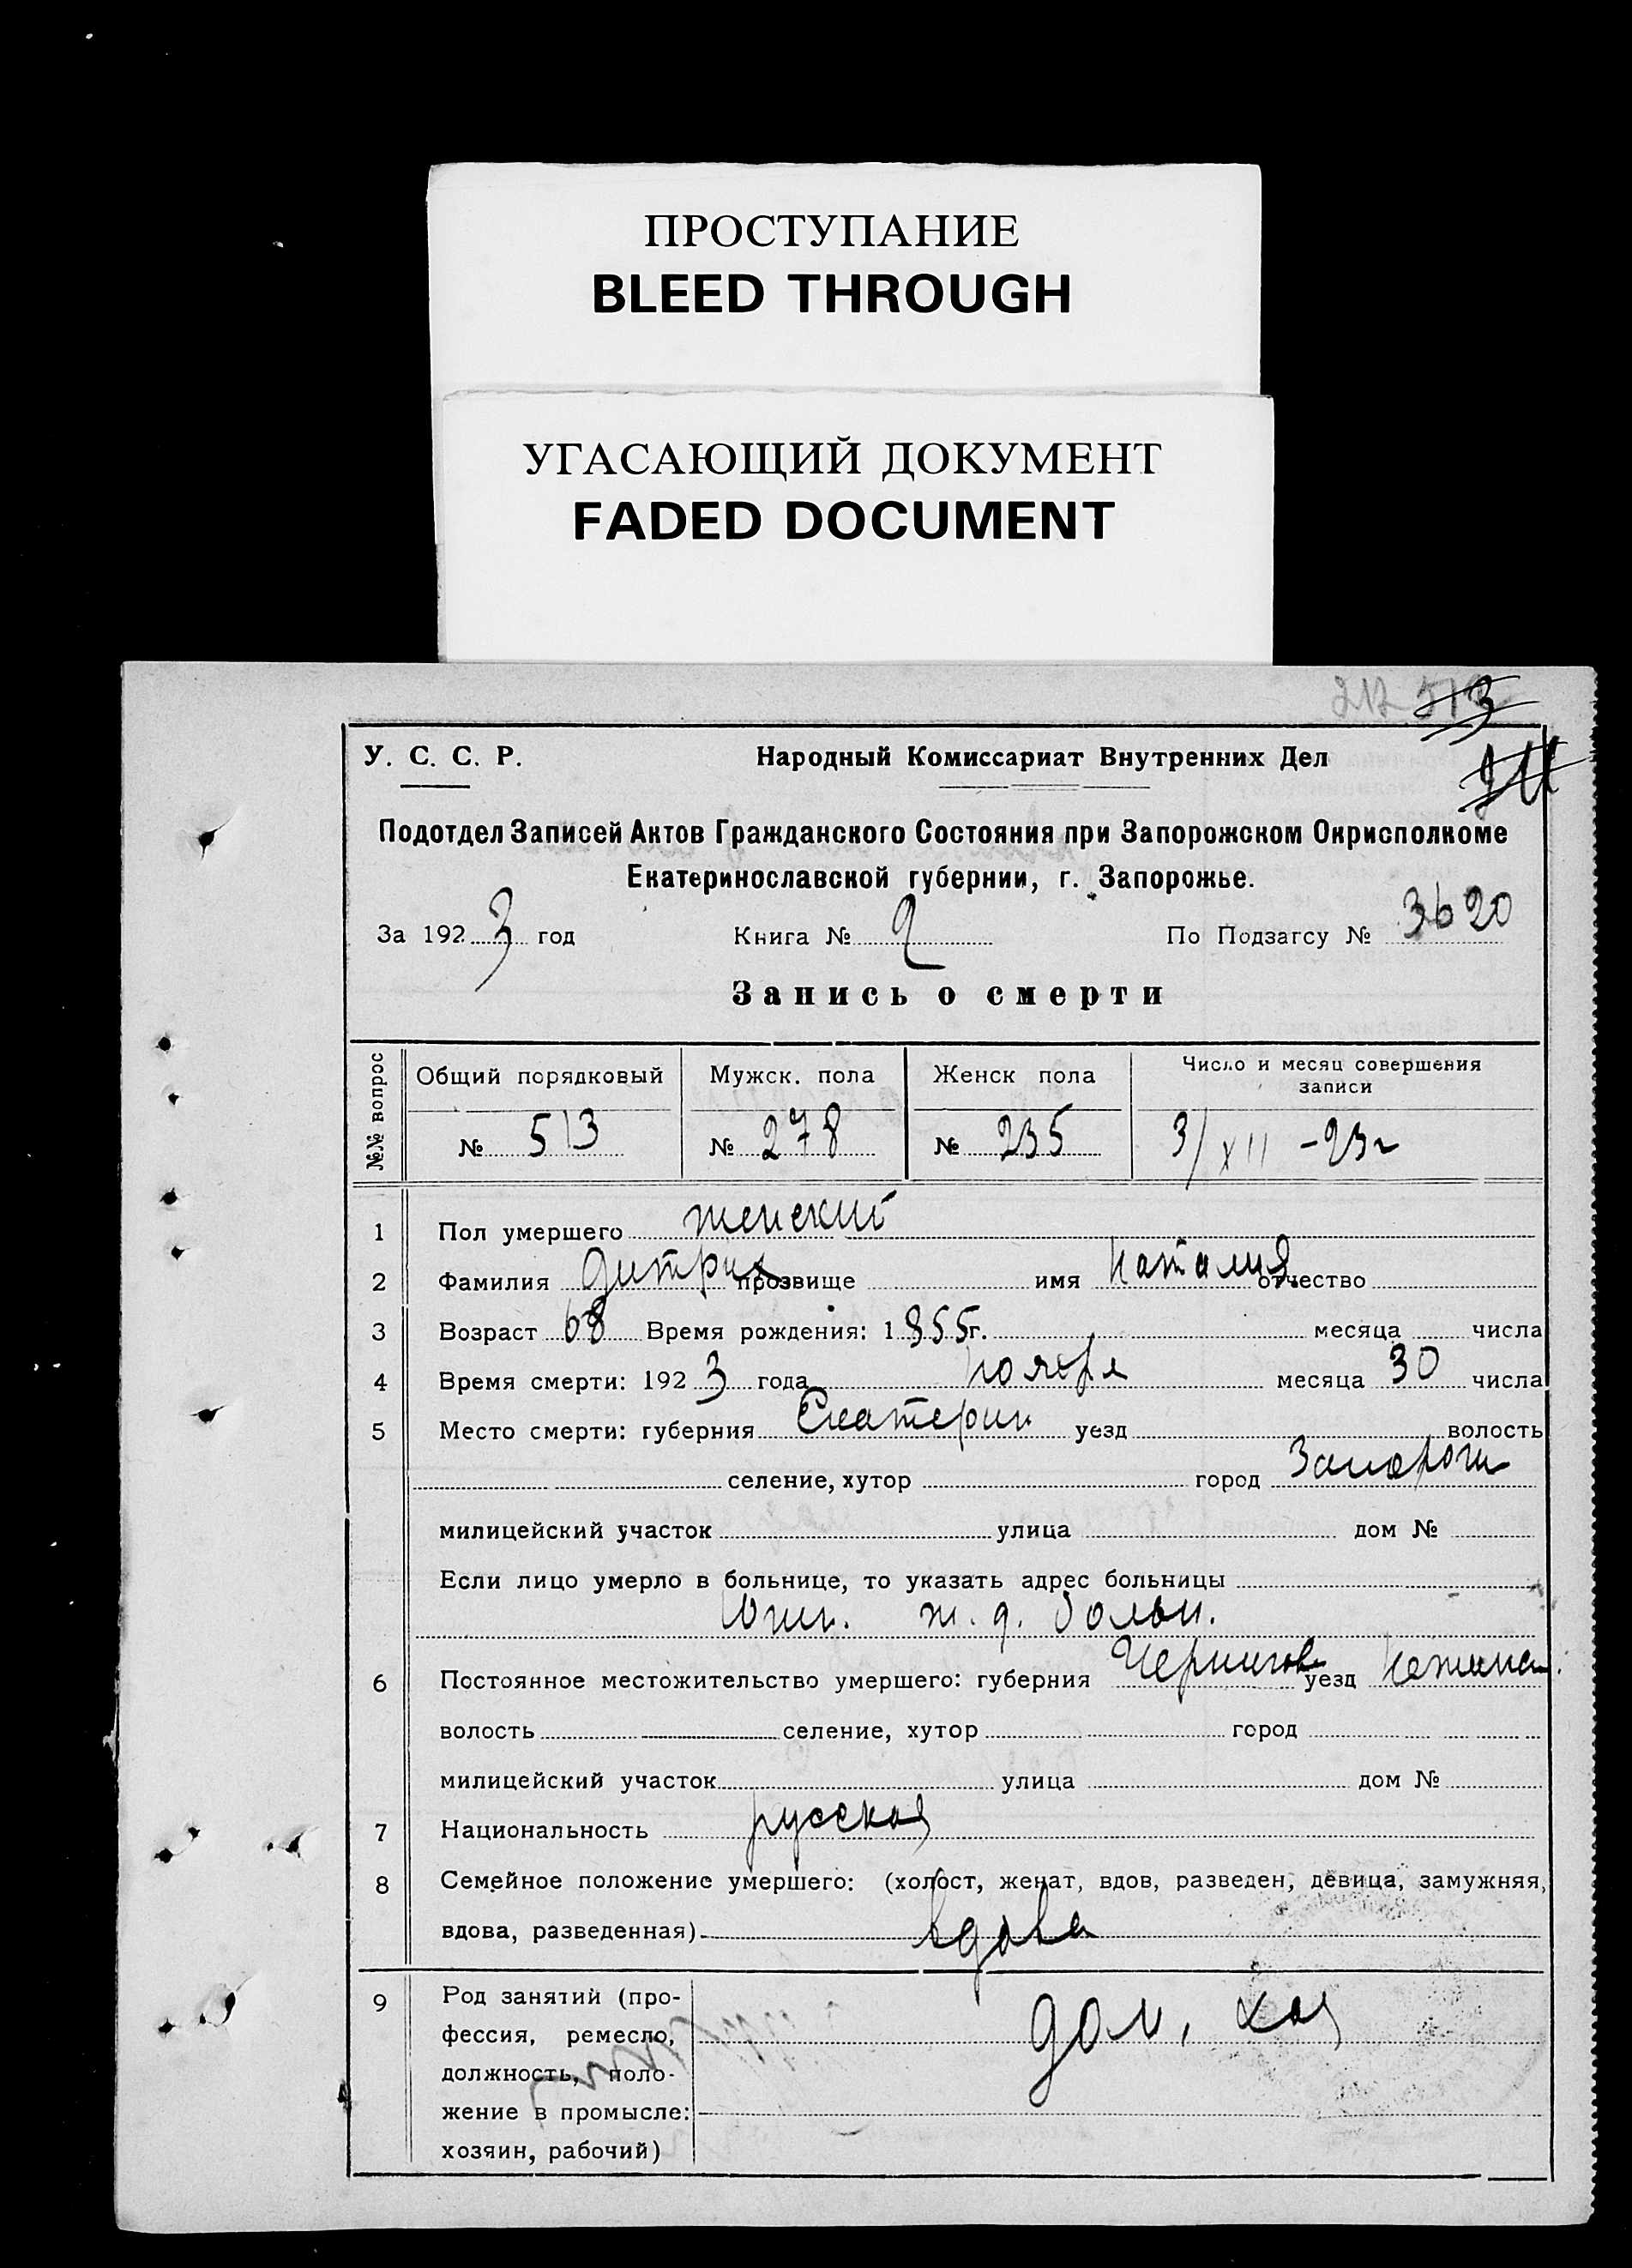 ПРОСТУПАНИЕ
BLEED THROUGH
УГАСАЮЩИЙ ДОКУМЕНТ
FADED DOCUMENT
У. С. С. Р. Народный Комиссариат Внутренних Дел
Подотдел Записей Актов Гражданского Состояния при Запорожском Окрисполкоме
Екатеринославской губернии, г. Запорожье.
За 1923 год Книга № 2 По Подзагсу № 3620
Запись о смерти
№№ вопрос Общий порядковый Мужск. пола Женск пола Число и месяц совершения
записи
№ 513 № 278 № 235 3/XII -23г
1 Пол умершего женский
2 Фамилия Дитрих прозвище имя Наталия отчество
3 Возраст 68 Время рождения: 1855г. месяца числа
4 Время смерти: 1923 года ноября месяца 30 числа
5 Место смерти: губерния Екатерин уезд волость
селение, хутор город Запорож
милицейский участок улица дом №
Если лицо умерло в больнице, то указать адрес больницы
Южн. ж. д. больн.
6 Постоянное местожительство умершего: губерния Чернигов уезд Нежин.
волость селение, хутор город
милицейский участок улица дом №
7 Национальность русская
8 Семейное положение умершего: (холост, женат, вдов, разведен, девица, замужняя,
вдова, разведенная) вдова
9 Род занятий (про-
фессия, ремесло, дом. хоз
должность, поло-
жение в промысле:
хозяин, рабочий)